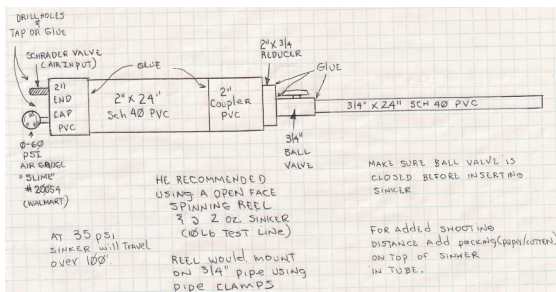 DRILL HOLES
&
TAP OR GLUE
SCHRADER VALVE
(AIR INPUT)
GLUE
2" X 3/4
REDUCER
GLUE
2"
END
CAP
PVC
2" X 24"
Sch 40 PVC
2"
Coupler
PVC
3/4" X 24" SCH 40 PVC
0-60
PSI
AIR GAUGE
"SLIME"
# 20054
(WALMART)
3/4"
BALL
VALVE
HE RECOMMENDED
USING A OPEN FACE
SPINNING REEL
& 2 oz. SINKER
(10 Lb TEST LINE)
MAKE SURE BALL VALVE IS
CLOSED BEFORE INSERTING
SINKER
AT 35 psi
SINKER will Travel
over 100'
REEL WOULD MOUNT
ON 3/4" pipe USING
PIPE CLAMPS
FOR Added SHOOTING
DISTANCE Add packing (paper/cotton)
ON TOP OF SINKER
IN TUBE.